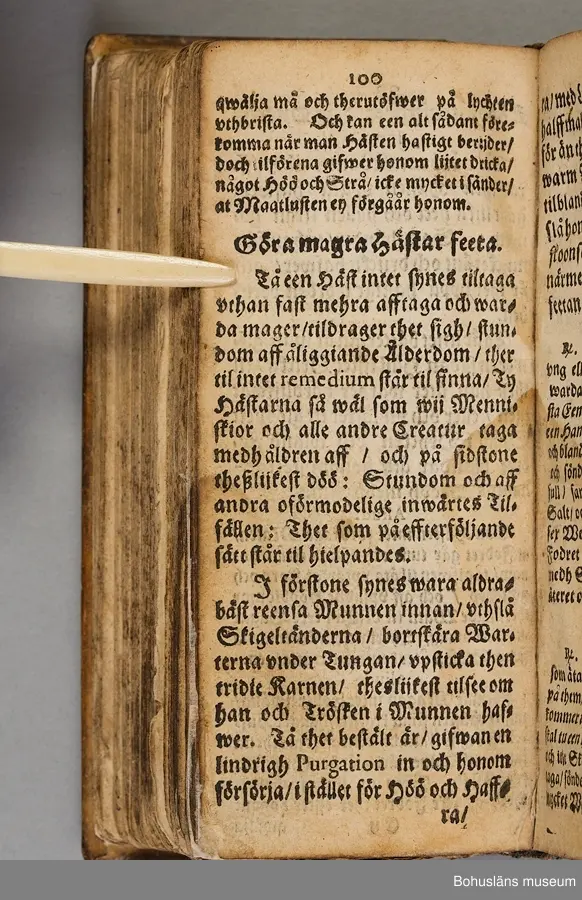 100
qwälja må och therutöfwer på lychten
vthbrista. Och kan een alt sådant före-
komma när man Hästen hastigt berijder/
doch tilförena gifwer honom lijtet dricka/
något Höö och Strå/ icke mycket i sänder/
at Maatlusten ey förgåår honom.
Göra magra Hästar feeta.
Tå een Häst intet synes tiltaga
vthan fast mehra afftaga och war-
da mager/ tildrager thet sigh/ stun-
dom aff åliggiande Ålderdom/ ther
til intet remedium står til finna/ Ty
Hästarna så wäl som wij Menni-
skior och alle andre Creatur taga
medh åldren aff / och på sidstone
theßlijkest döö: Stundom och aff
andra oförmodelige inwärtes Til-
fällen: Thet som på effterföljande
sätt står til hielpandes.
I förstone synes wara aldra-
bäst reensa Munnen innan/ vthslå
Skigeltänderna/ bortskära War-
terna vnder Tungan/ vpsticka then
tridie Karnen/ theslijkest tilsee om
han och Trösken i Munnen haf-
wer. Tå thet bestält är/ gifwan en
lindrigh Purgation in och honom
försörja/ i stället för Höö och Haff-
ra/
ra/ med
halff
för än th
warm
tilblan
slå hon
närme
feetan
℞.
vng ell
warda
sta Een
een Han
och bland
och sönd
full/
Salt/
Fodret
nedh S
återet
℞.
som äta
på them
kommer
skal tu een
mycket
Bohusläns museum